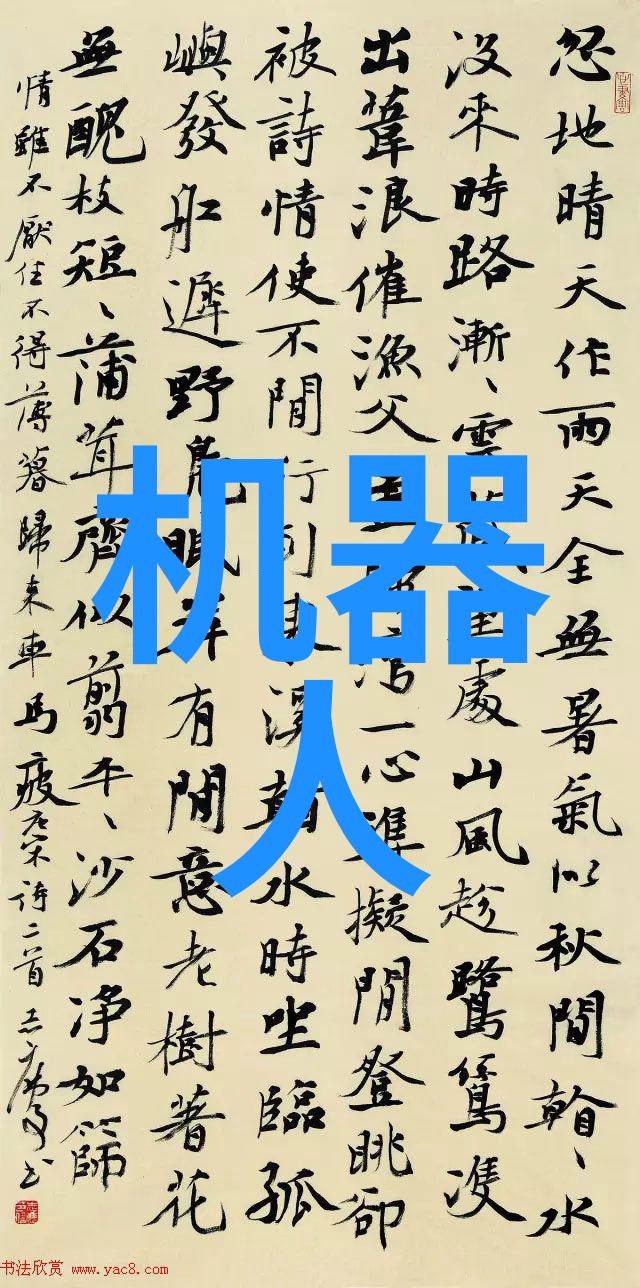 忽地晴天作雨天全無暑氣似秋間看、水
沒来時路漸、雲藏望處山風趁鷺鷥雙
出葦浪催漁父盡歸灣一心準擬閒登眺卻
被詩情使不閒行到東溪看水時坐臨孤
嶼發舡遲野鳧眠岸有閒意老樹著花
無醜枝短、蒲茸齊似翦平、沙石净如篩
情雖不厭住不得薄暮歸来車馬疲 宋詩二首 書
机器
人
书法欣赏 www.yac8.com